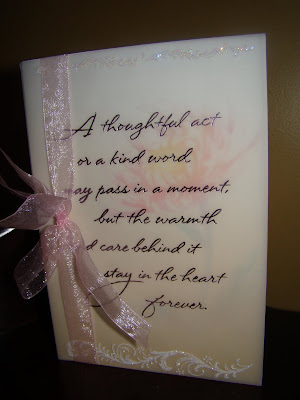 A thoughtful act
or a kind word
ay pass in a moment,
but the warmth
d care behind it
stay in the heart
forever.